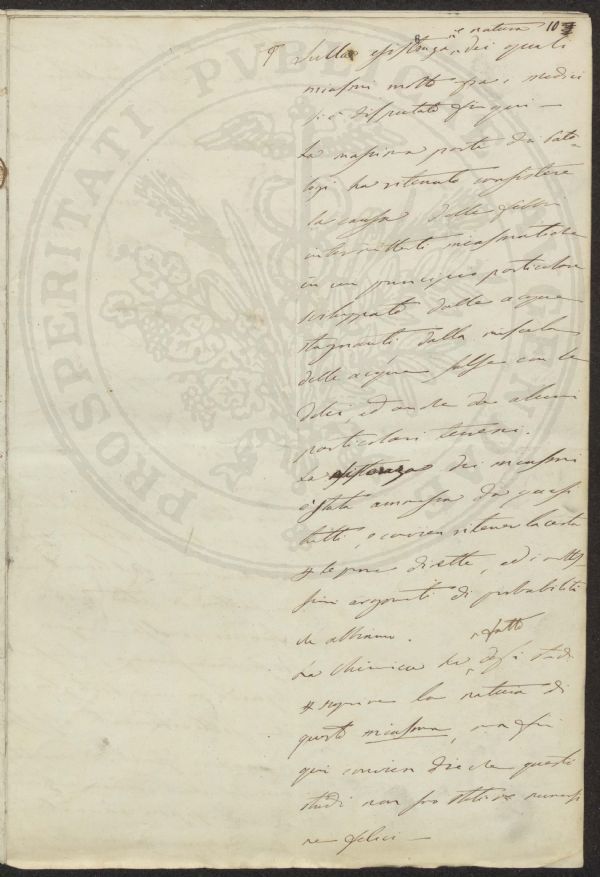 e natura 10
9 Sulla esistenza, dei quali
miasmi molto fra i medici
si è disputato fin qui —
La massima parte dei Pato-
logi ha ritenuto consistere
la causa delle febbri
intermittenti miasmatiche
in un principio particolare
sviluppato dalle acque
stagnanti dalla miscela
delle acque salse con le
dolci, ed anche da alcuni
particolari terreni.
La esistenza dei miasmi
è stata ammessa da quasi
tutti, e convien ritenerla certa
le prove dirette, ed i moltis-
simi argomenti di probabilità
che abbiamo.
fatto
La Chimica ha degli studi
la natura di
questo miasma, ma fin
qui convien dire che questi
studi non
re felici —
PROSPERITATI PUBLICAE